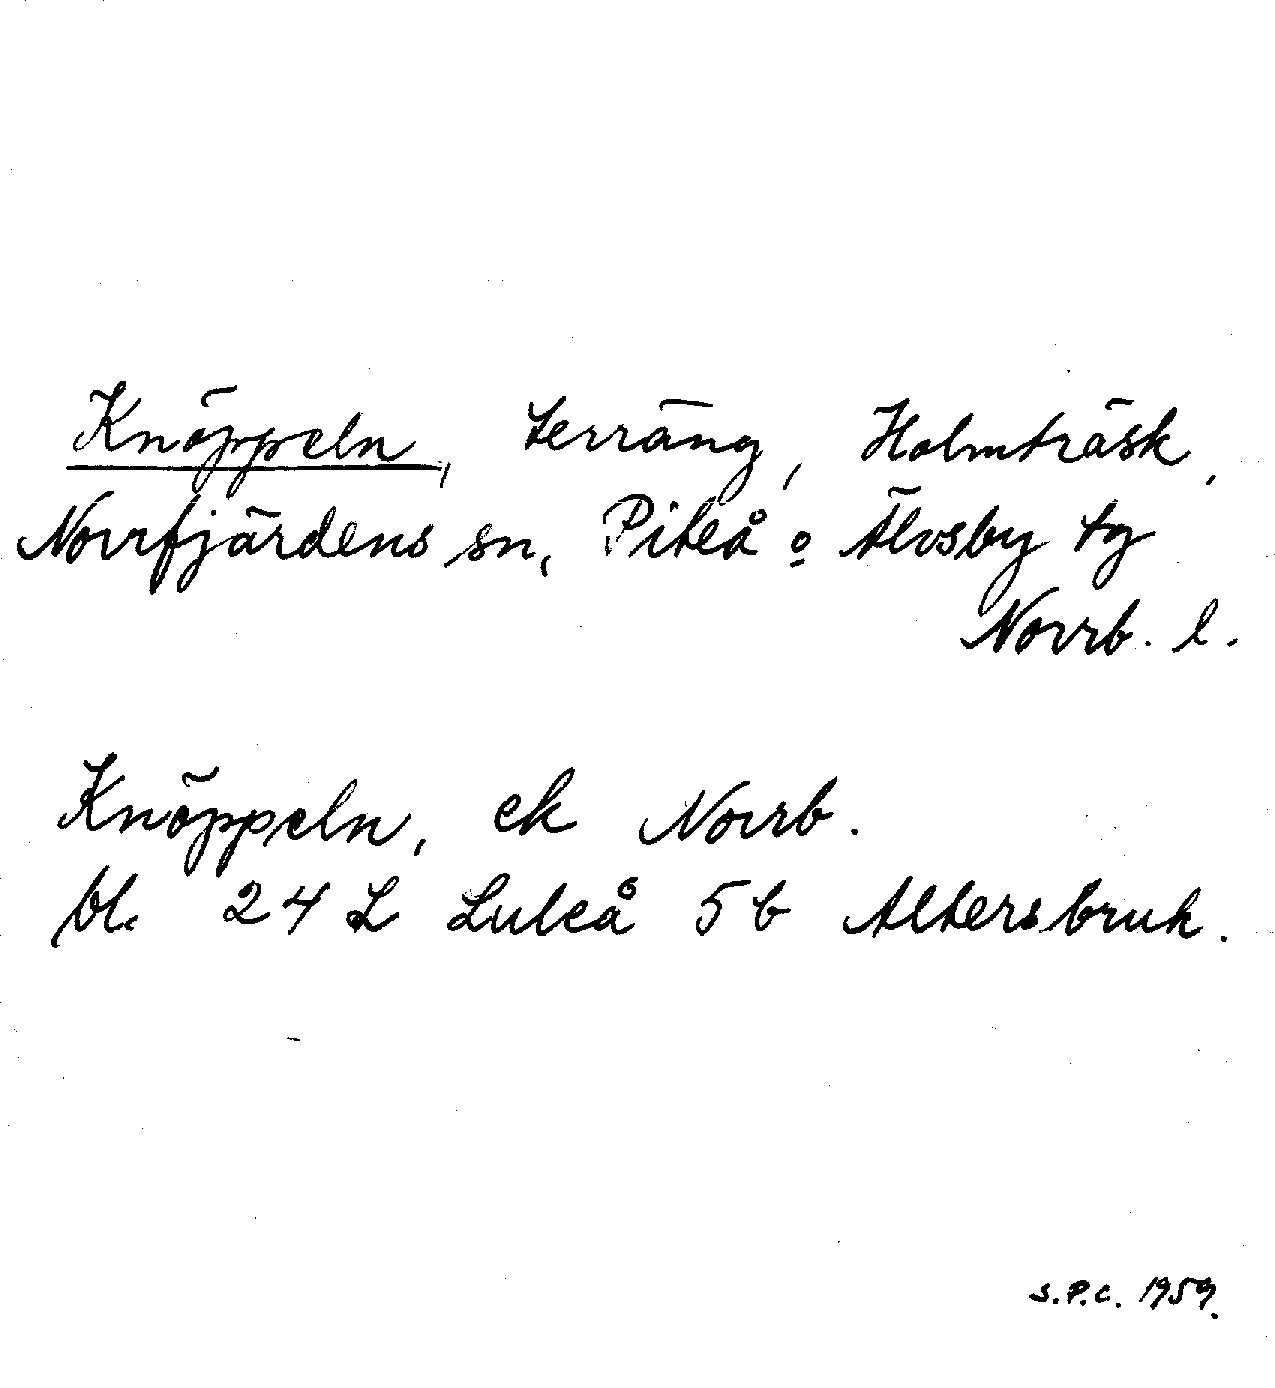 Knöppeln, terräng, Holmträsk,
Norrfjärdens sn, Piteå o Älvsby tg
Norrb. l.
Knöppeln, ek Norrb.
bl. 24 L Luleå 5 b Altersbruk.
S.P.C. 1959.